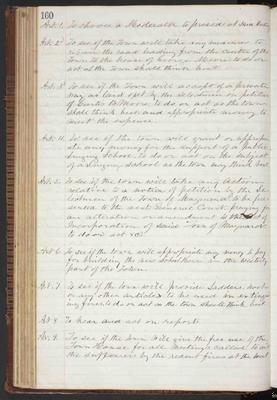 160
Art. 1. To choose a Moderator to preside at said
Art. 2 To see if the Town will take any measures to
repair the road leading from the centre of the
Town to the house of George Moore to do or
act as the Town shall think best.
Art. 3 To see if the Town will accept of a private
way as laid out by the Selectmen on petition
of Curtis W Moore to do or act as the town
shall think best and appropriate money to
meet the expense
Art. 4. To see if the town will grant or appropri
ate any money for the support of a public
Singing School to do or act on the subject
of a singing school as the town may think best
Art. 5. To see if the town will take any action
relative to a notice of petition by the Se
lectmen of the town of Maynard to be pre
sented to the next General Court praying for
an alteration or amendment to
Incorporation of said Town of Maynard
to do or act &c
Art. 6 To see if the town will appropriate any money to pay
for building the new School house in the westerly
part of the Town.
Art. 7 To see if the town will provide Ladders, hooks
or any other articles to be used in exting
fires to do or act as the town should think best
Art 8 To hear and act on reports
Art. 9. To see if the Town will give the free use of the
Town House for all meetings called to aid
the sufferers by the recent fires at the West